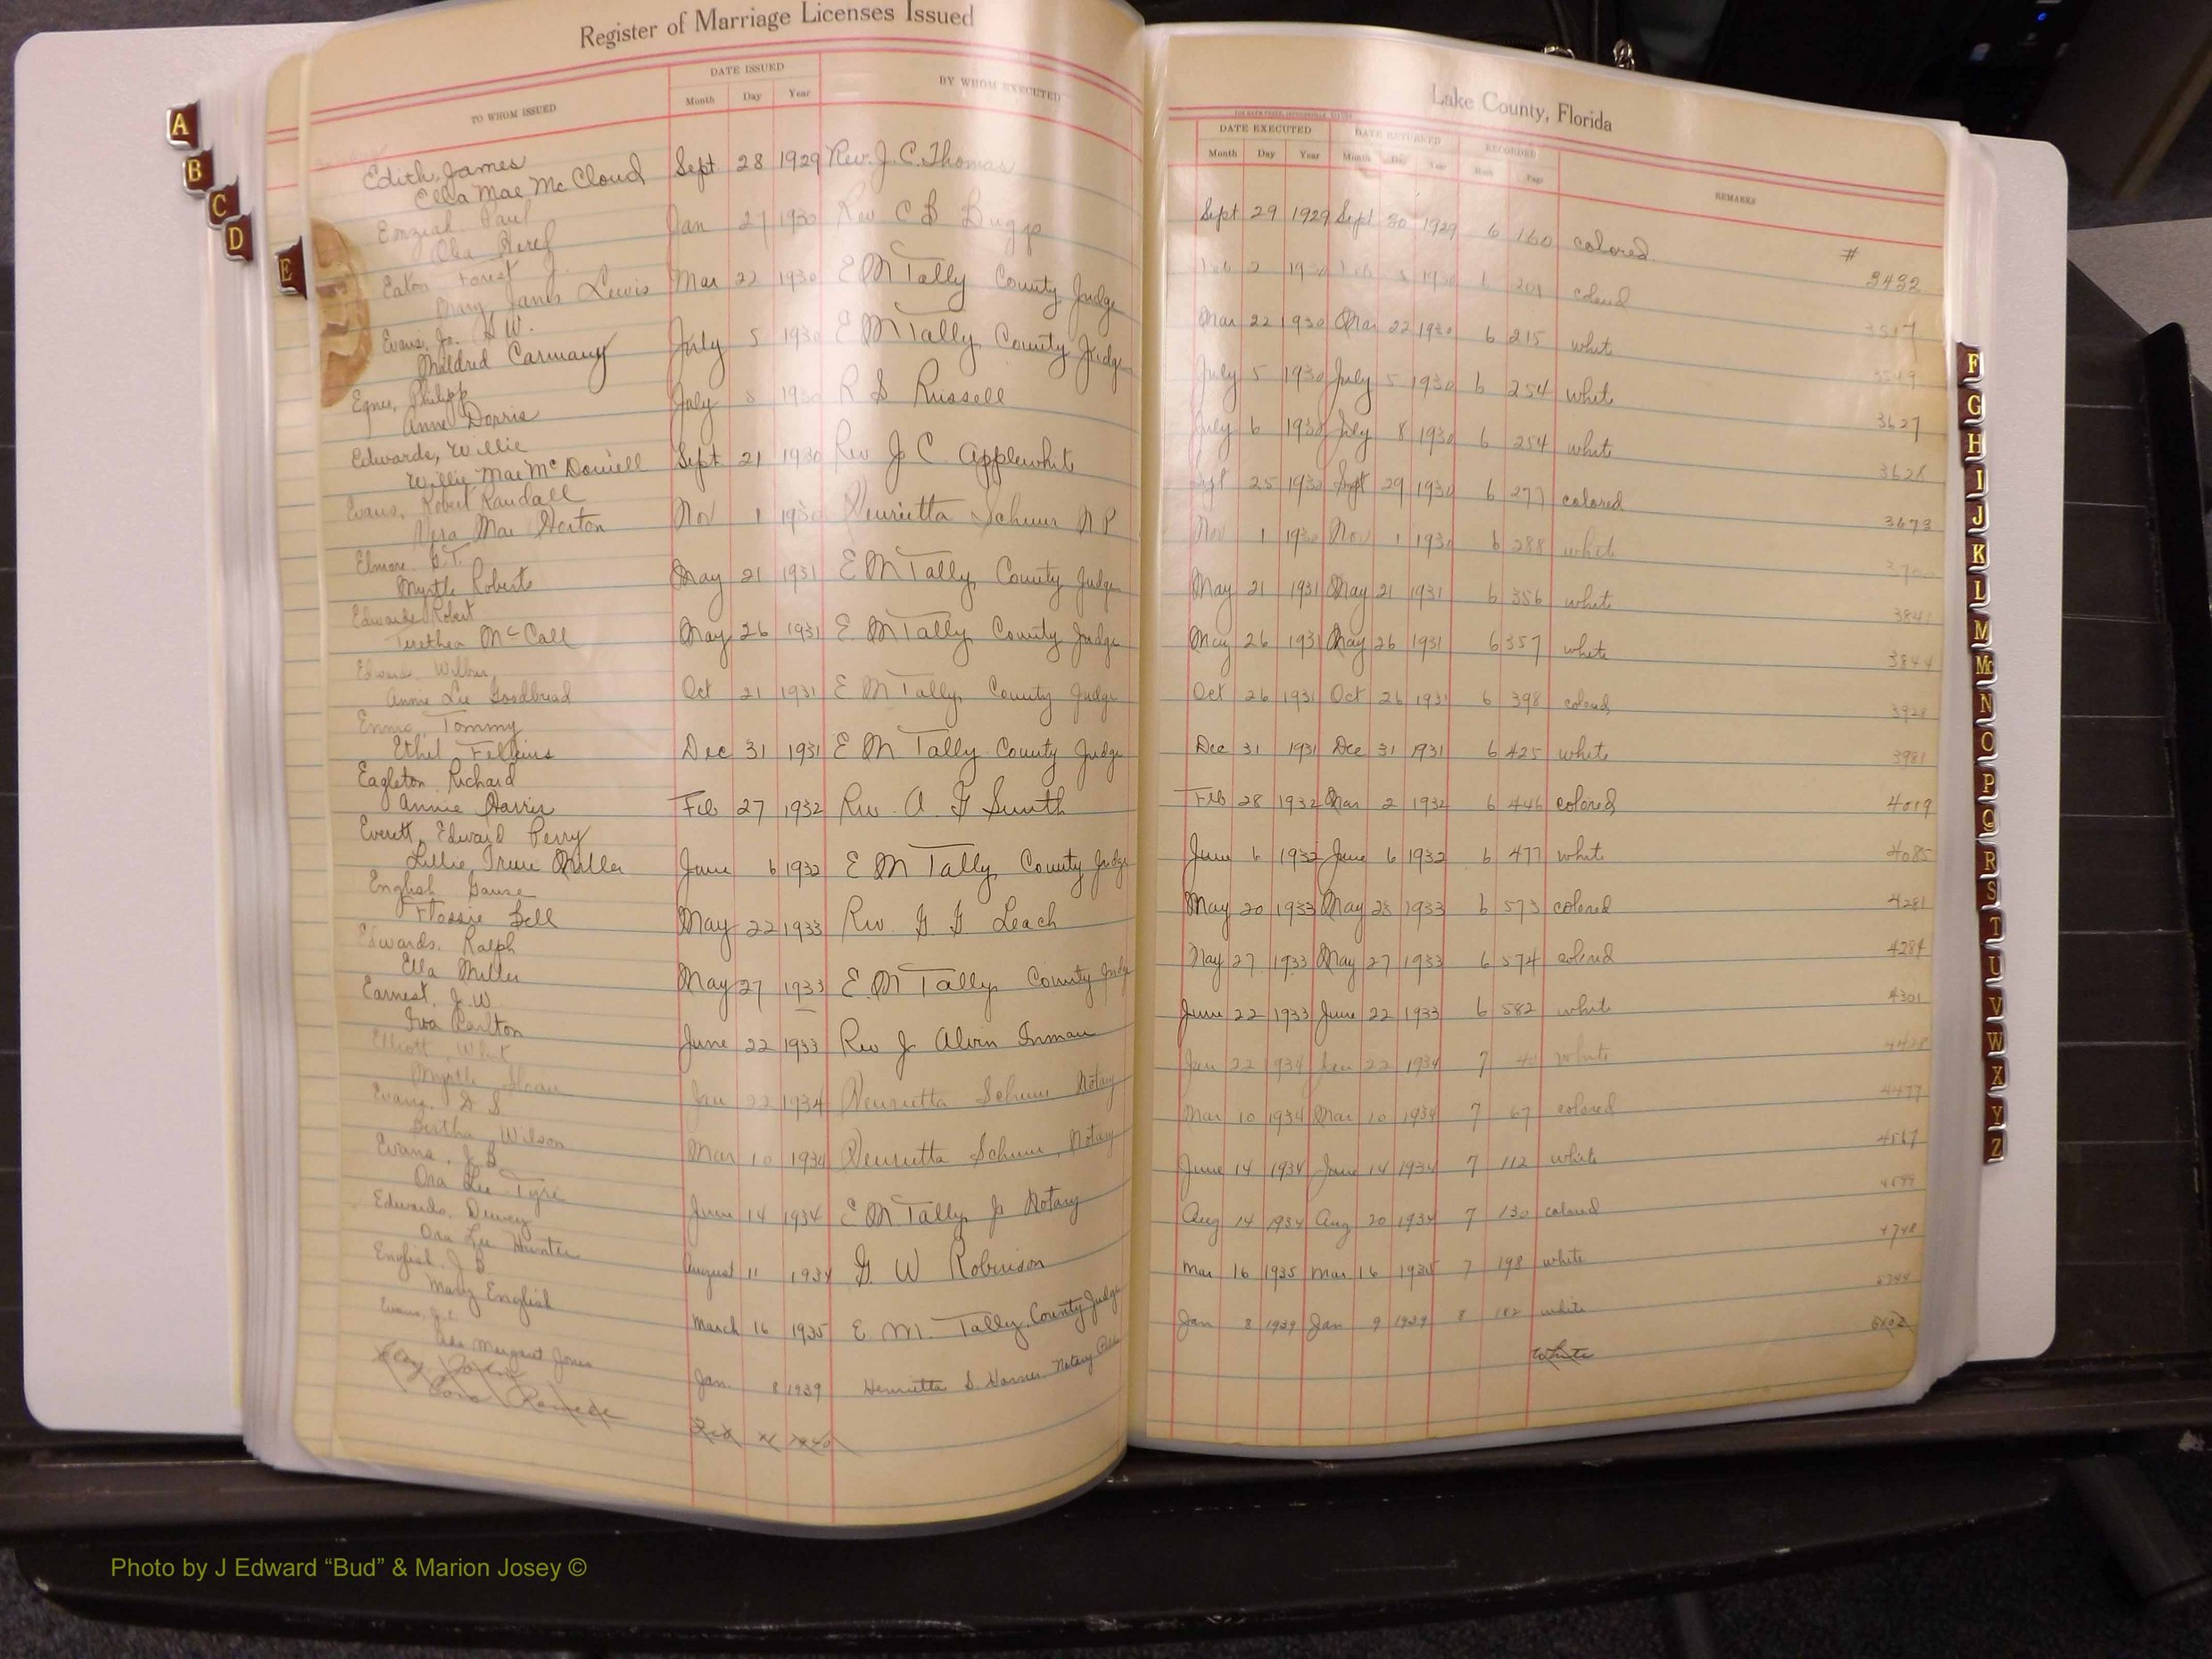 Register of Marriage Licenses Issued
TO WHOM ISSUED
DATE ISSUED
Month Day Year
BY WHOM EXECUTED
Edith, James
Ella Mae McCloud Sept 28 1929 Rev. J. C. Thomas
Paul
Jan 27 1930 Rev C B
Eaton Forest J.
Mary Janes Lewis Mar 22 1930 E M Tally County Judge
Evans, Jr. W.
Mildred Carmany July 5 1930 E M Tally County Judge
Philipp
Anne Dorris July 5 1930 R S Russell
Edwards, Willie
Willie Mae McDowell Sept 21 1930 Rev J C Applewhite
Evans, Robert Randall
Vera Mae Horton Nov 1 1930 Henrietta N P
Elmore, G.T.
Myrtle Roberts May 21 1931 E M Tally, County Judge
Edwards Robert
McCall May 26 1931 E. M Tally, County Judge
Wilbur
Annie Lee Goodbread Oct 21 1931 E M Tally, County Judge
Tommy
Ethel Dec 31 1931 E M Tally County Judge
Eagleton, Richard
Annie Harris Feb 27 1932 Rev. A. G Smith
Everett, Edward Perry
Lillie Irene Miller June 6 1932 E M Tally, County Judge
English
Flossie Bell May 22 1933 Rev. G. G. Leach
Edwards, Ralph
Ella Miller May 27 1933 E. M Tally County Judge
Earnest, J. W.
Iva Carlton June 22 1933 Rev J Alvin Inman
Elliott,
Myrtle Jan 22 1934 Henrietta Notary
Evans, D S.
Bertha Wilson Mar 10 1934 Henrietta Notary
Evans, J B
Ora Lee Tyre June 14 1934 E M Tally Jr Notary
Edwards, Dewey
Ora Lee Hunter August 11 1934 G. W Robinson
English, J B.
Mary English March 16 1935 E. M. Tally, County Judge
Evans,
Margaret Jones Jan. 8 1939 Henrietta S. Notary
Lake County, Florida
DATE EXECUTED
Month Day Year
DATE RETURNED
Month Day Year
RECORDED
Book Page
REMARKS
Sept 29 1929 Sept 30 1929 6 160 colored # 3432
Feb 2 1930 201 colored
Mar 22 1930 Mar 22 1930 6 215 white
July 5 1930 July 5 1930 6 254 white 3627
July 6 1930 July 8 1930 6 254 white 3628
Sept 25 1930 Sept 29 1930 6 277 colored 3673
Nov 1 1930 Nov 1 1930 6 288 white
May 21 1931 May 21 1931 6 356 white
May 26 1931 May 26 1931 6 357 white 3844
Oct 26 1931 Oct 26 1931 6 398 colored
Dec 31 1931 Dec 31 1931 6 425 white 3981
Feb 28 1932 Mar 2 1932 6 446 colored 4019
June 6 1932 June 6 1932 6 477 white 4085
May 20 1933 May 23 1933 6 573 colored 4281
May 27 1933 May 27 1933 6 574 colored 4284
June 22 1933 June 22 1933 6 582 white 4301
Jan 22 1934 Jan 22 1934 7 white
Mar 10 1934 Mar 10 1934 7 67 colored 4477
June 14 1934 June 14 1934 7 112 white 4567
Aug 14 1934 Aug 20 1934 7 130 colored
Mar 16 1935 Mar 16 1935 7 198 white 4748
Jan 8 1939 Jan 9 1939 8 182 white
white
A
B
C
D
E
F
G
H
I
J
K
L
M
Mc
N
O
P
Q
R
S
T
U
V
W
X
Y
Z
Photo by J Edward “Bud” & Marion Josey ©